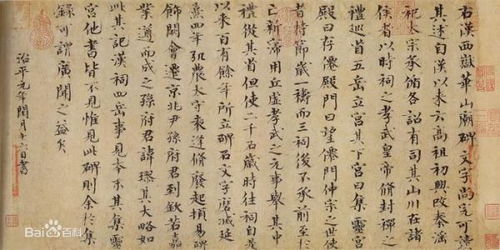 右漢西嶽華山廟碑文字尚完可讀
其述自漢以來云高祖初興改秦淫
祀太宗承循各詔有司其山川在諸
侯者以時祠之孝武皇帝脩封禪之
禮巡省五岳立宮其下宮曰集靈宮
殿曰存僊殿門曰望僊門仲宗之世使
者持節歲一禱而三祠後不承前至于
亡新寖用丘虛孝武之元事舉其中
禮從其省但使二千石歲時往祠自是
以來百有餘年所立碑石文字磨滅延
熹四年弘農太守袁逢脩廢起頓易碑
飾闕會遷京兆尹孫府君到欽若嘉
業遵而成之孫府君諱璆其大略如
此其記漢祠四岳事見本末其集靈
宮他書皆不見惟見此碑則余於集
錄可謂廣聞之益矣
治平元年閏月十六日書
Bai百科